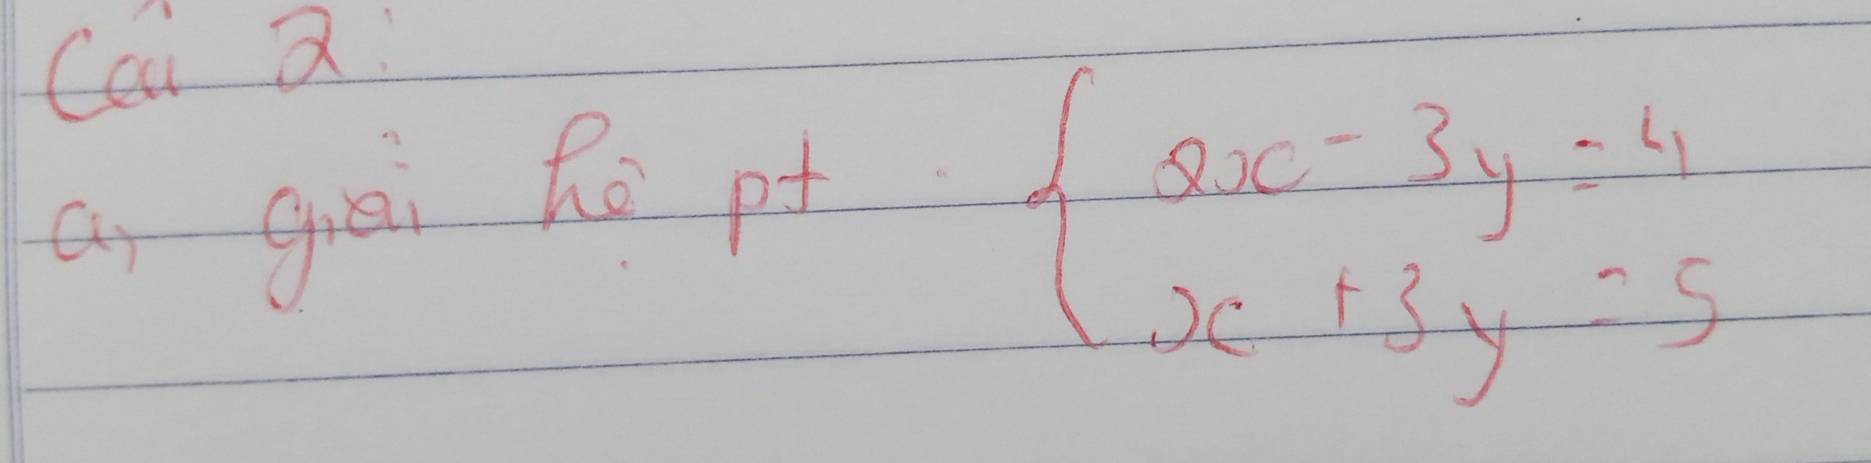 Câu 2:
a, giải hệ pt { 2x - 3y = 4
x + 3y = 5